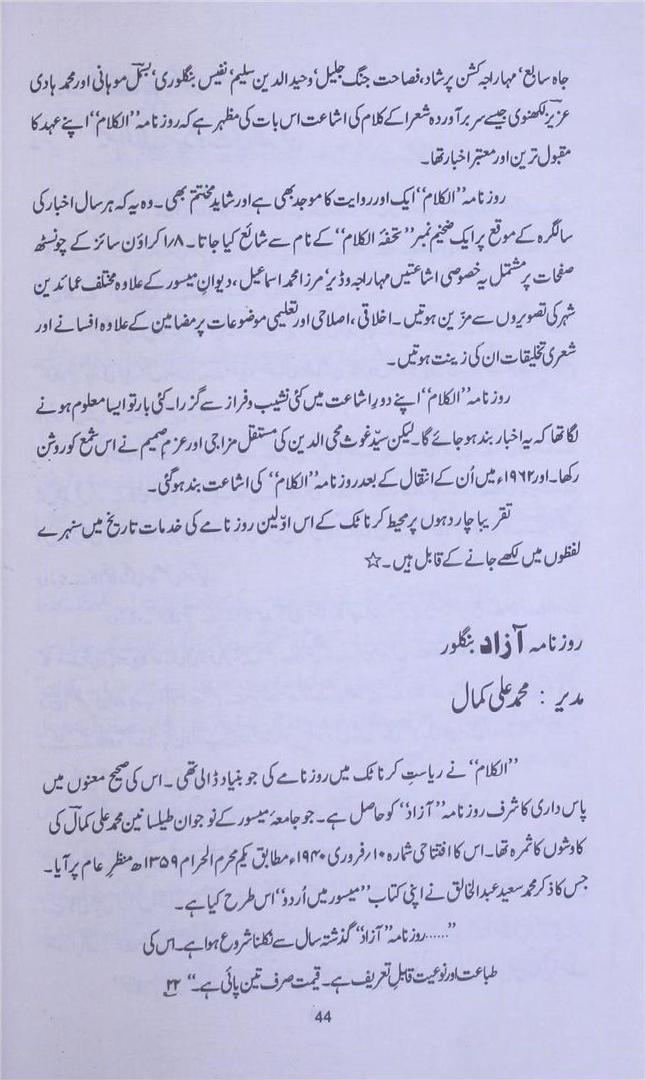 جاہ سابع‘ مہاراجہ کشن پرشاد، فصاحت جنگ جلیل‘ وحید الدین سلیم‘ نفیس بنگلوری‘ بسملؔ موہانی اور محمد ہادی
عزیزؔ لکھنوی جیسے سربرآوردہ شعرا کے کلام کی اشاعت اس بات کی مظہر ہے کہ روزنامہ ’’الکلام‘‘ اپنے عہد کا
مقبول ترین اور معتبر اخبار تھا۔
روزنامہ ’’الکلام‘‘ ایک اور روایت کا موجد بھی ہے اور شاید مختتم بھی۔ وہ یہ کہ ہر سال اخبار کی
سالگرہ کے موقع پر ایک ضخیم نمبر ’’تحفۂ الکلام‘‘ کے نام سے شائع کیا جاتا۔ ۱/۸ کراؤن سائز کے چونسٹھ
صفحات پر مشتمل یہ خصوصی اشاعتیں مہاراجہ وڈیر‘ مرزا محمد اسماعیل، دیوانِ میسور کے علاوہ مختلف عمائدین
شہر کی تصویروں سے مزّین ہوتیں۔ اخلاقی، اصلاحی اور تعلیمی موضوعات پر مضامین کے علاوہ افسانے اور
شعری تخلیقات ان کی زینت ہوتیں۔
روزنامہ ’’الکلام‘‘ اپنے دورِ اشاعت میں کئی نشیب و فراز سے گزرا۔ کئی بار تو ایسا معلوم ہونے
لگا تھا کہ یہ اخبار بند ہو جائے گا۔ لیکن سیّد غوث محی الدین کی مستقل مزاجی اور عزمِ صمیم نے اس شمع کو روشن
رکھا۔ اور ۱۹۶۲ء میں اُن کے انتقال کے بعد روزنامہ ’’الکلام‘‘ کی اشاعت بند ہو گئی۔
تقریباً چار دہوں پر محیط کرناٹک کے اس اوّلین روزنامے کی خدمات تاریخ میں سنہرے
لفظوں میں لکھے جانے کے قابل ہیں۔ ☆
روزنامہ آزاد بنگلور
مدیر : محمد علی کمال
’’الکلام‘‘ نے ریاستِ کرناٹک میں روزنامے کی جو بنیاد ڈالی تھی۔ اس کی صحیح معنوں میں
پاس داری کا شرف روزنامہ ’’آزاد‘‘ کو حاصل ہے۔ جو جامعۂ میسور کے نوجوان طیلسانین محمد علی کمالؔ کی
کاوشوں کا ثمرہ تھا۔ اس کا افتتاحی شمارہ ۱۰؍فروری ۱۹۴۰ء مطابق یکم محرم الحرام ۱۳۵۹ھ منظرِ عام پر آیا۔
جس کا ذکر محمد سعید عبدالخالق نے اپنی کتاب ’’میسور میں اُردو‘‘ اس طرح کیا ہے۔
’’......روزنامہ ’’آزاد‘‘ گذشتہ سال سے نکلنا شروع ہوا ہے۔ اس کی
طباعت اور نوعیت قابلِ تعریف ہے۔ قیمت صرف تین پائی ہے۔‘‘ ۲۲
44